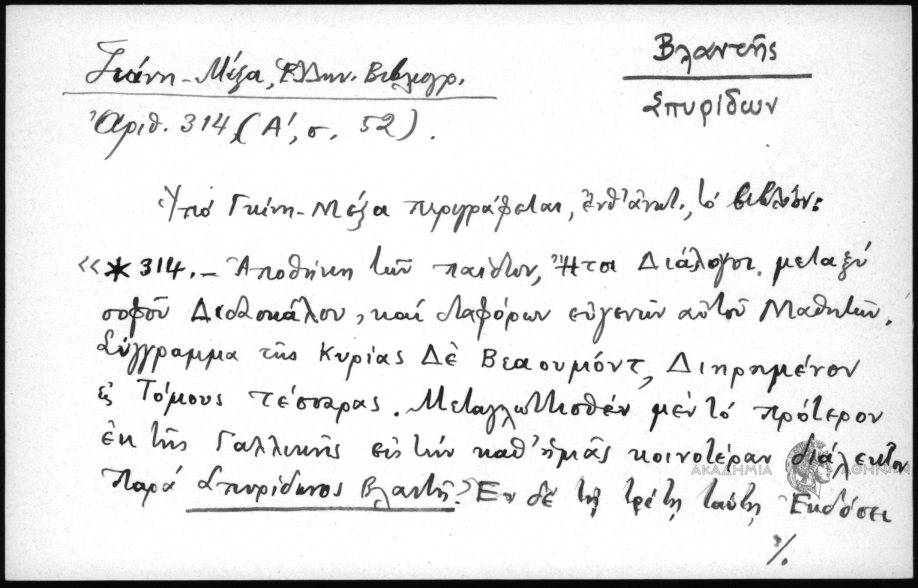 Γκίνη - Μέξα, Ἑλλην. Βιβλιογρ.
Ἀριθ. 314, (Α', σ. 52).
Βλαντῆς
Σπυρίδων
Ὑπό Γκίνη - Μέξα περιγράφεται, ἐνθ' ἀνωτ., τό βιβλίον:
«*314. – Ἀποθήκη τῶν παίδων, Ἤτοι Διάλογοι μεταξύ
σοφοῦ Διδασκάλου, καί διαφόρων εὐγενῶν αὐτοῦ Μαθητῶν.
Σύγγραμμα τῆς Κυρίας Δὲ Βεαουμόντ, Διηρημένον
εἰς Τόμους τέσσαρας. Μεταγλωττισθέν μέν τό πρότερον
ἐκ τῆς Γαλλικῆς εἰς τήν καθ' ἡμᾶς κοινοτέραν διάλεκτον
παρά Σπυρίδωνος Βλαντῆ. Ἐν δέ τῇ τρίτῃ ταύτῃ Ἐκδόσει
ΑΚΑΔΗΜΙΑ ΑΘΗΝΩΝ
./.